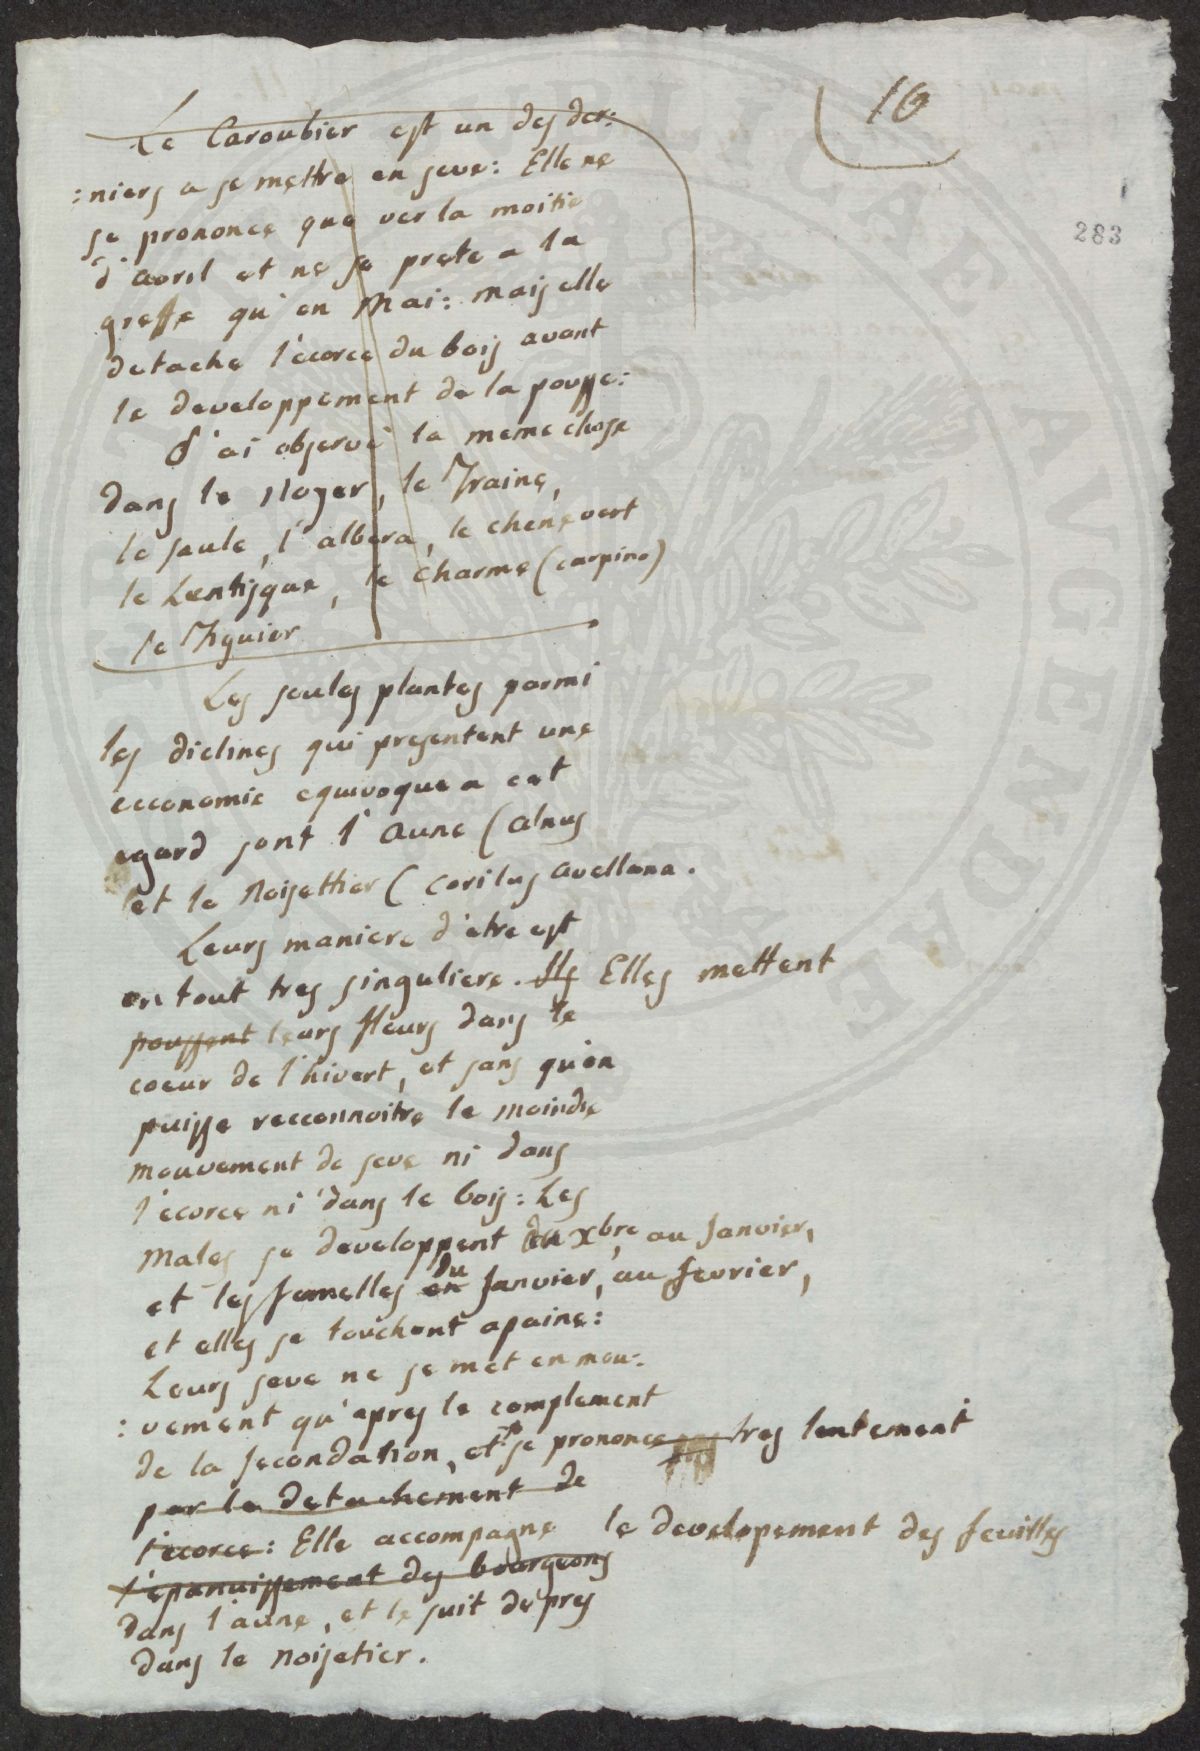 16
283
Le Caroubier est un des der:
:niers a se mettre en seve: Elle ne
se prononce que ver la moitie
d'avril et ne se prete a la
greffe qu'en Mai: mais elle
detache l'ecorce du bois avant
le developpement de la pousse:
J'ai observé la meme chose
dans le Noyer, le Fraine,
le saule, l'albera, le chene vert
le Lentisque, le charme (carpino)
le Figuier
Les seules plantes parmi
les diclines qui presentent une
economie equivoque a cet
egard sont l'Aune (alnus
et le Noisettier (corilus avellana.
Leurs maniere d'etre est
en tout tres singuliere. Ils Elles mettent
poussent leurs fleurs dans le
coeur de l'hivert, et sans qu'on
puisse reconnoitre le moindre
mouvement de seve ni dans
l'ecorce ni dans le bois: Les
Males se developpent du Xbre, au Janvier,
et les femelles en du Janvier, au fevrier,
et elles se touchent apaine:
Leurs seve ne se met en mou:
:vement qu'apres le complement
de la fecondation, et se prononce tres lentement
par le detachement de
l'ecorce: Elle accompagne le developement des feuilles
l'epanuissement des bourgeons
dans l'aune, et le suit de pres
dans le noisetier.